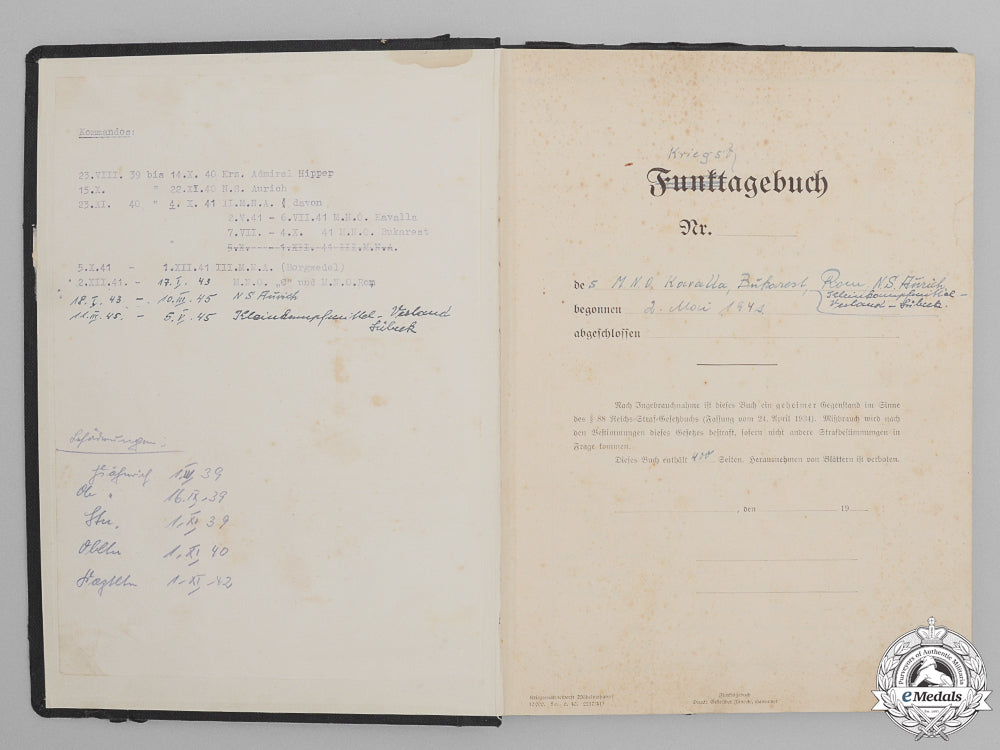 Kommandos:
23.VIII. 39 bis 14.X. 40 Krz. Admiral Hipper
15.X. " 22.XI.40 N.S. Aurich
23.XI. 40 " 4. X. 41 II.M.N.A. davon
2.V.41 - 6.VII.41 M.N.O. Kavalla
7.VII. - 4.X. 41 M.N.O. Bukarest
5.X. - 1.XII. 41 III.M.N.A.
5.X.41 - 1.XII.41 III.M.N.A. (Borgwedel)
2.XII.41. - 17.I. 43 M.N.O. "C" und M.N.O.Rom
18.I. 43 - 10.III. 45 NS Aurich
11.III.45. - 5.V.45 Kleinkampfmittel-Verband
Lübeck
Beförderungen:
Fähnrich 39
Ob " 16. 39
Ltn. 1. 39
Obltn 1. 40
Kaptltn 1. 42
Kriegst
Funktagebuch
Nr.
des M.N.O. Kavalla, Bukarest, Rom, N.S. Aurich,
Kleinkampfmittel-
Verband - Lübeck.
begonnen 2. Mai 1941
abgeschlossen
Nach Ingebrauchnahme ist dieses Buch ein geheimer Gegenstand im Sinne
des § 88 Reichs-Straf-Gesetzbuchs (Fassung vom 24. April 1934). Mißbrauch wird nach
den Bestimmungen dieses Gesetzes bestraft, sofern nicht andere Strafbestimmungen in
Frage kommen.
Dieses Buch enthält 400 Seiten. Herausnehmen von Blättern ist verboten.
, den 19
Funktagebuch
Druck: Gebrüder Jänecke, Hannover
Purveyors of Authentic Militaria
eMedals